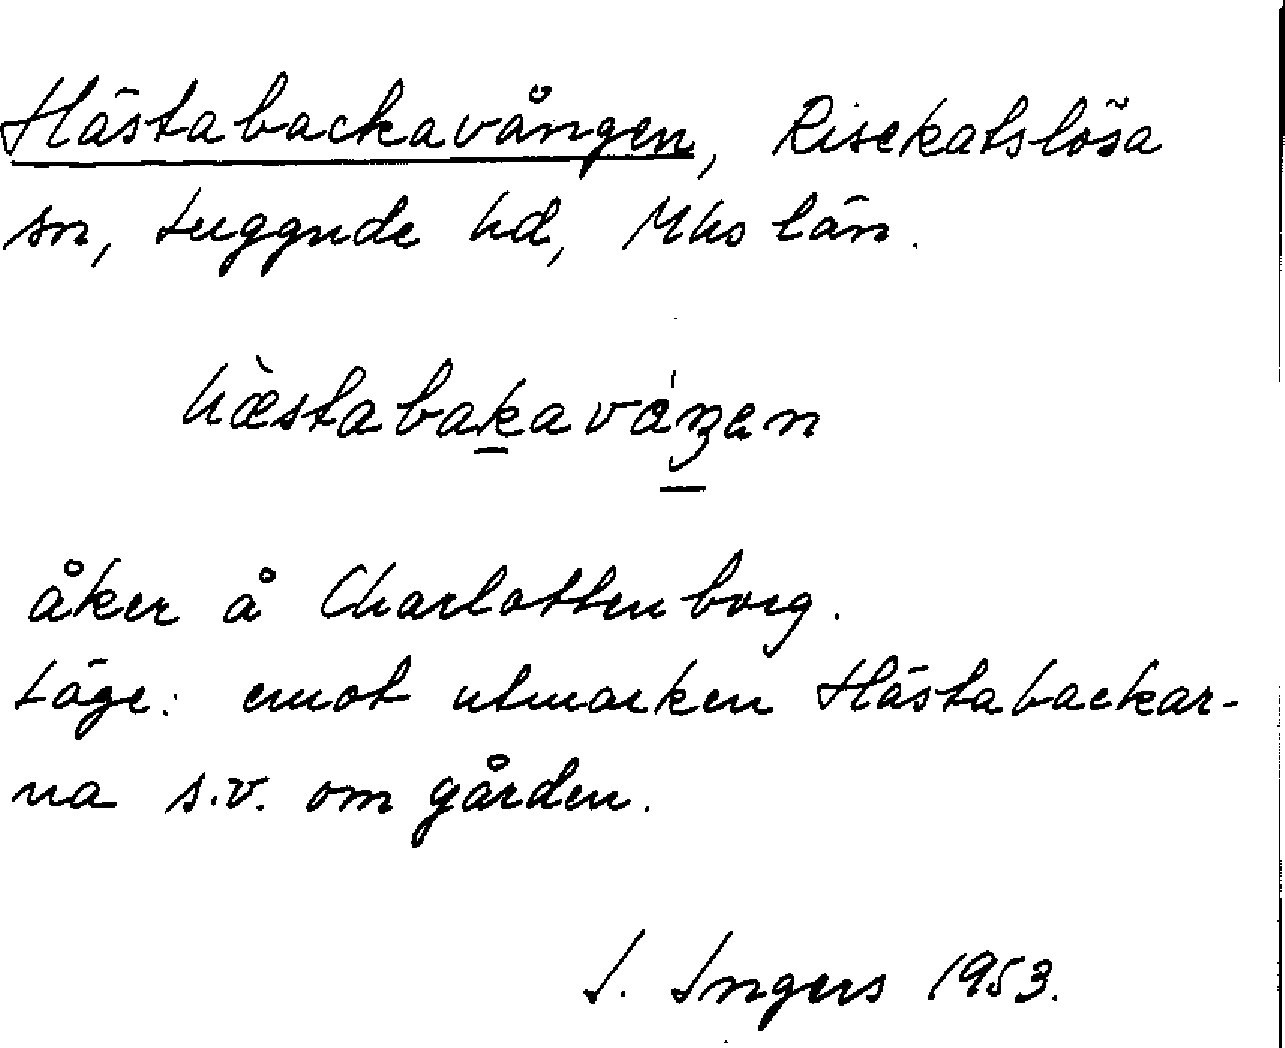 Hästabackavången, Risekatslösa
sn, Luggude hd, Mhs län.
hæ̀stabaka̠váŋen
åker å Charlottenborg.
Läge: emot utmarken Hästabackar-
na s.v. om gården.
I. Ingers 1953.